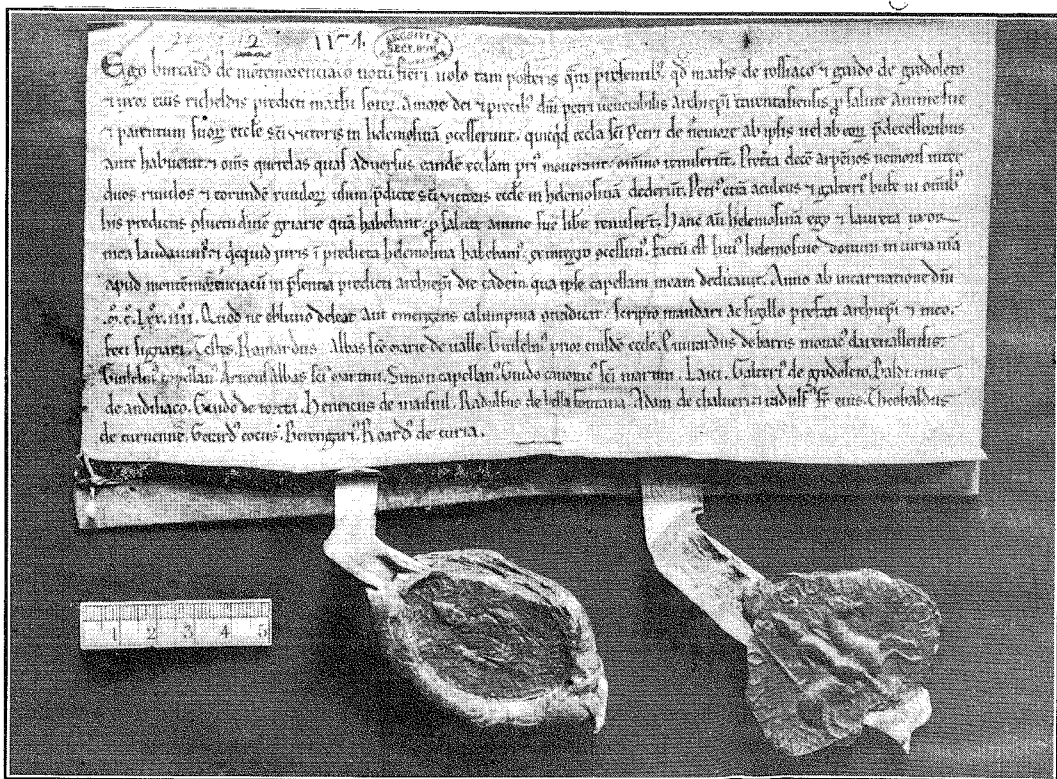 2 2 1174.
ARCHIVES SECT. HIST.
Ego burcard' de mōtemorenciaco notū fieri uolo tam posteris q̄m presentib; qd̄ matħs de rossiaco ⁊ guido de grodoleto
⁊ uxor eius richeldis predicti mathi soror. Amore dei ⁊ precib; dn̄i petri uenerabilis archiepi tarentasiensis p̱ salute anime sue
⁊ parentum suoꝝ eccl̄e sc̄i victoris in helemosinā ɔcesserunt. quicqd eccl̄a sc̄i Petri de nemore ab ipsis uel ab eoꝝ p̄decessoribus
ante habuerat ⁊ om̄s querelas quas aduersus eandē eccl̄am pri' mouerant om̄ino remiserūt. Preterea decē arpēnos nemoris inter
duos riuulos ⁊ eorundē riuuloꝝ usum p̄dicte sc̄i victoris eccl̄e in helemosinā dederūt. Petr' etiā aculeus ⁊ galteri' in om̄ib;
his predictis ɔsuetudinē griarie quā habebant p̱ salute anime sue libe remiserūt. Hanc aū helemosinā ego ⁊ laureta uxor
mea laudauim' ⁊ qicquid iuris ī predicta helemosina habebam' ex integro ɔcessim'. Factū est hui' helemosine donum in curia mā
apud montēmorēciacū in p̄sentia predicti archiepi die eadem qua ipse capellam meam dedicauit. Anno ab incarnatione dn̄i
.ᴍ̊.c̊.Lxx.iiii. Quod ne obliuio deleat aut emergens calumpnia ɔtradicat. scripto mandari ac sigillo prefati archiepi ⁊ meo.
feci signari. Testes. Rainardus Abbas sc̄e marie de ualle. Guilelm' prior eiusdē eccl̄e. de barris monac'
Guilelm' capellan'. Abbas sc̄i martini. Simon capellan'. Guido canonic' sc̄i martini. Laici. Galteri' de grodoleto. Balduinus
de andiliaco. Guido de Henricus de maisnil. Radulfus de bella fontana. Adam de fr̄ eius. Theobaldus
de Gerard' cocus. Berengari'. Roard' de curia.
1 2 3 4 5